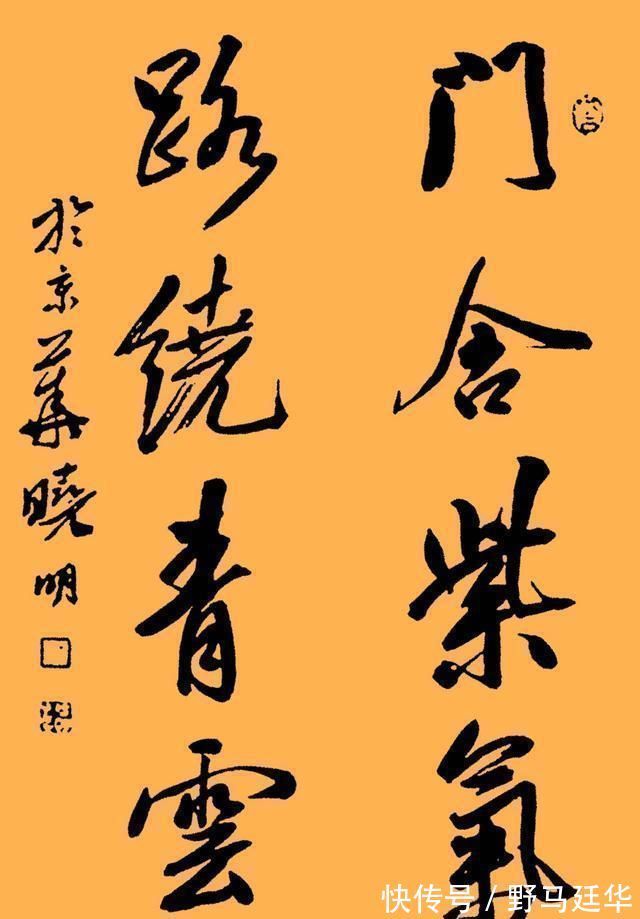 门含紫氣
路繞青雲
於京華曉明
快传号 / 野马廷华